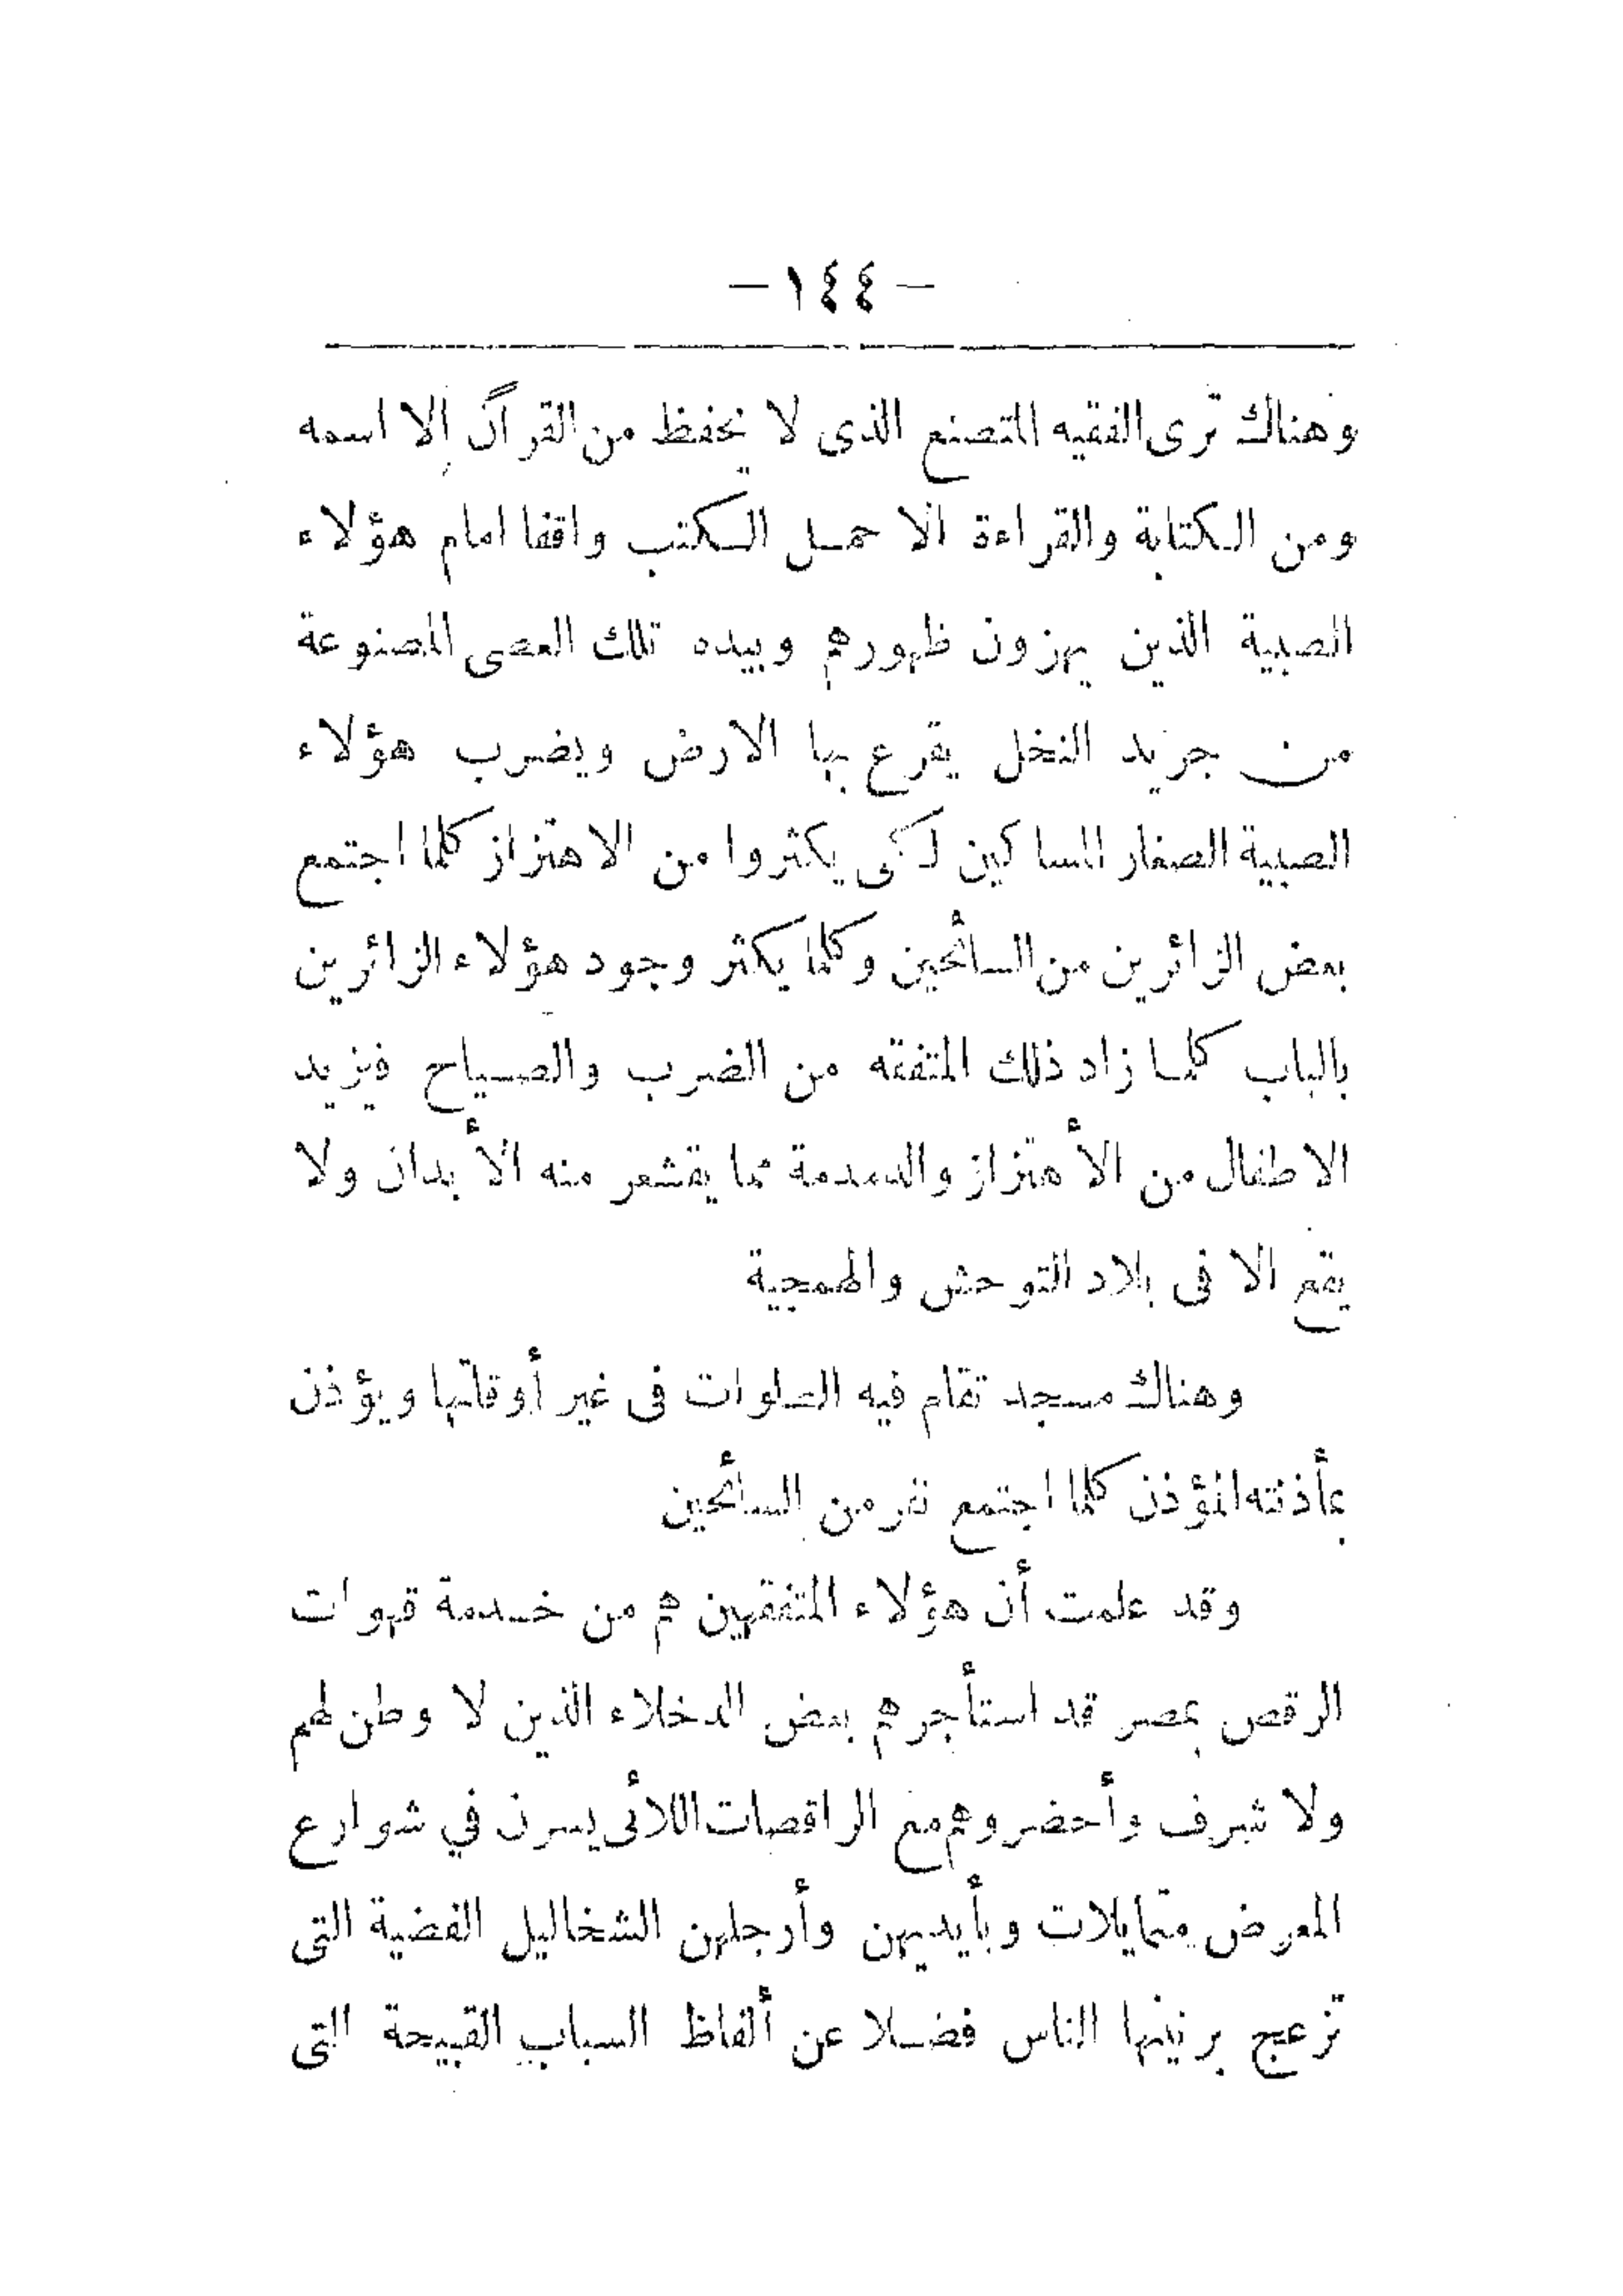 — ١٤٤ —
وهناك ترى الفقيه المتصنع الذى لا يحفظ من القرآن إلا اسمه
ومن الكتابة والقراءة الا حمل الكتب واقفا امام هؤلاء
الصبية الذين يهزون ظهورهم وبيده تلك العصى المصنوعة
من جريد النخل يقرع بها الارض ويضرب هؤلاء
الصبية الصغار المساكين لكى يكثروا من الاهتزاز كلما اجتمع
بعض الزائرين من السائحين وكلما يكثر وجود هؤلاء الزائرين
بالباب كلما زاد ذلك المتفقه من الضرب والصياح فيزيد
الاطفال من الأهتزاز والدمدمة مما يقشعر منه الأبدان ولا
يقع الا فى بلاد التوحش والهمجية
وهناك مسجد تقام فيه الصلوات فى غير أوقاتها ويؤذن
بمأذنته المؤذن كلما اجتمع نفر من السائحين
وقد علمت أن هؤلاء المتفقهين هم من خدمة قهوات
الرقص بمصر قد استأجرهم بعض الدخلاء الذين لا وطن لهم
ولا شرف وأحضروهم مع الراقصات اللائى يسرن في شوارع
المعرض متمايلات وبأيديهن وأرجلهن الشخاليل الفضية التى
تزعج برنينها الناس فضلا عن ألفاظ السباب القبيحة التى